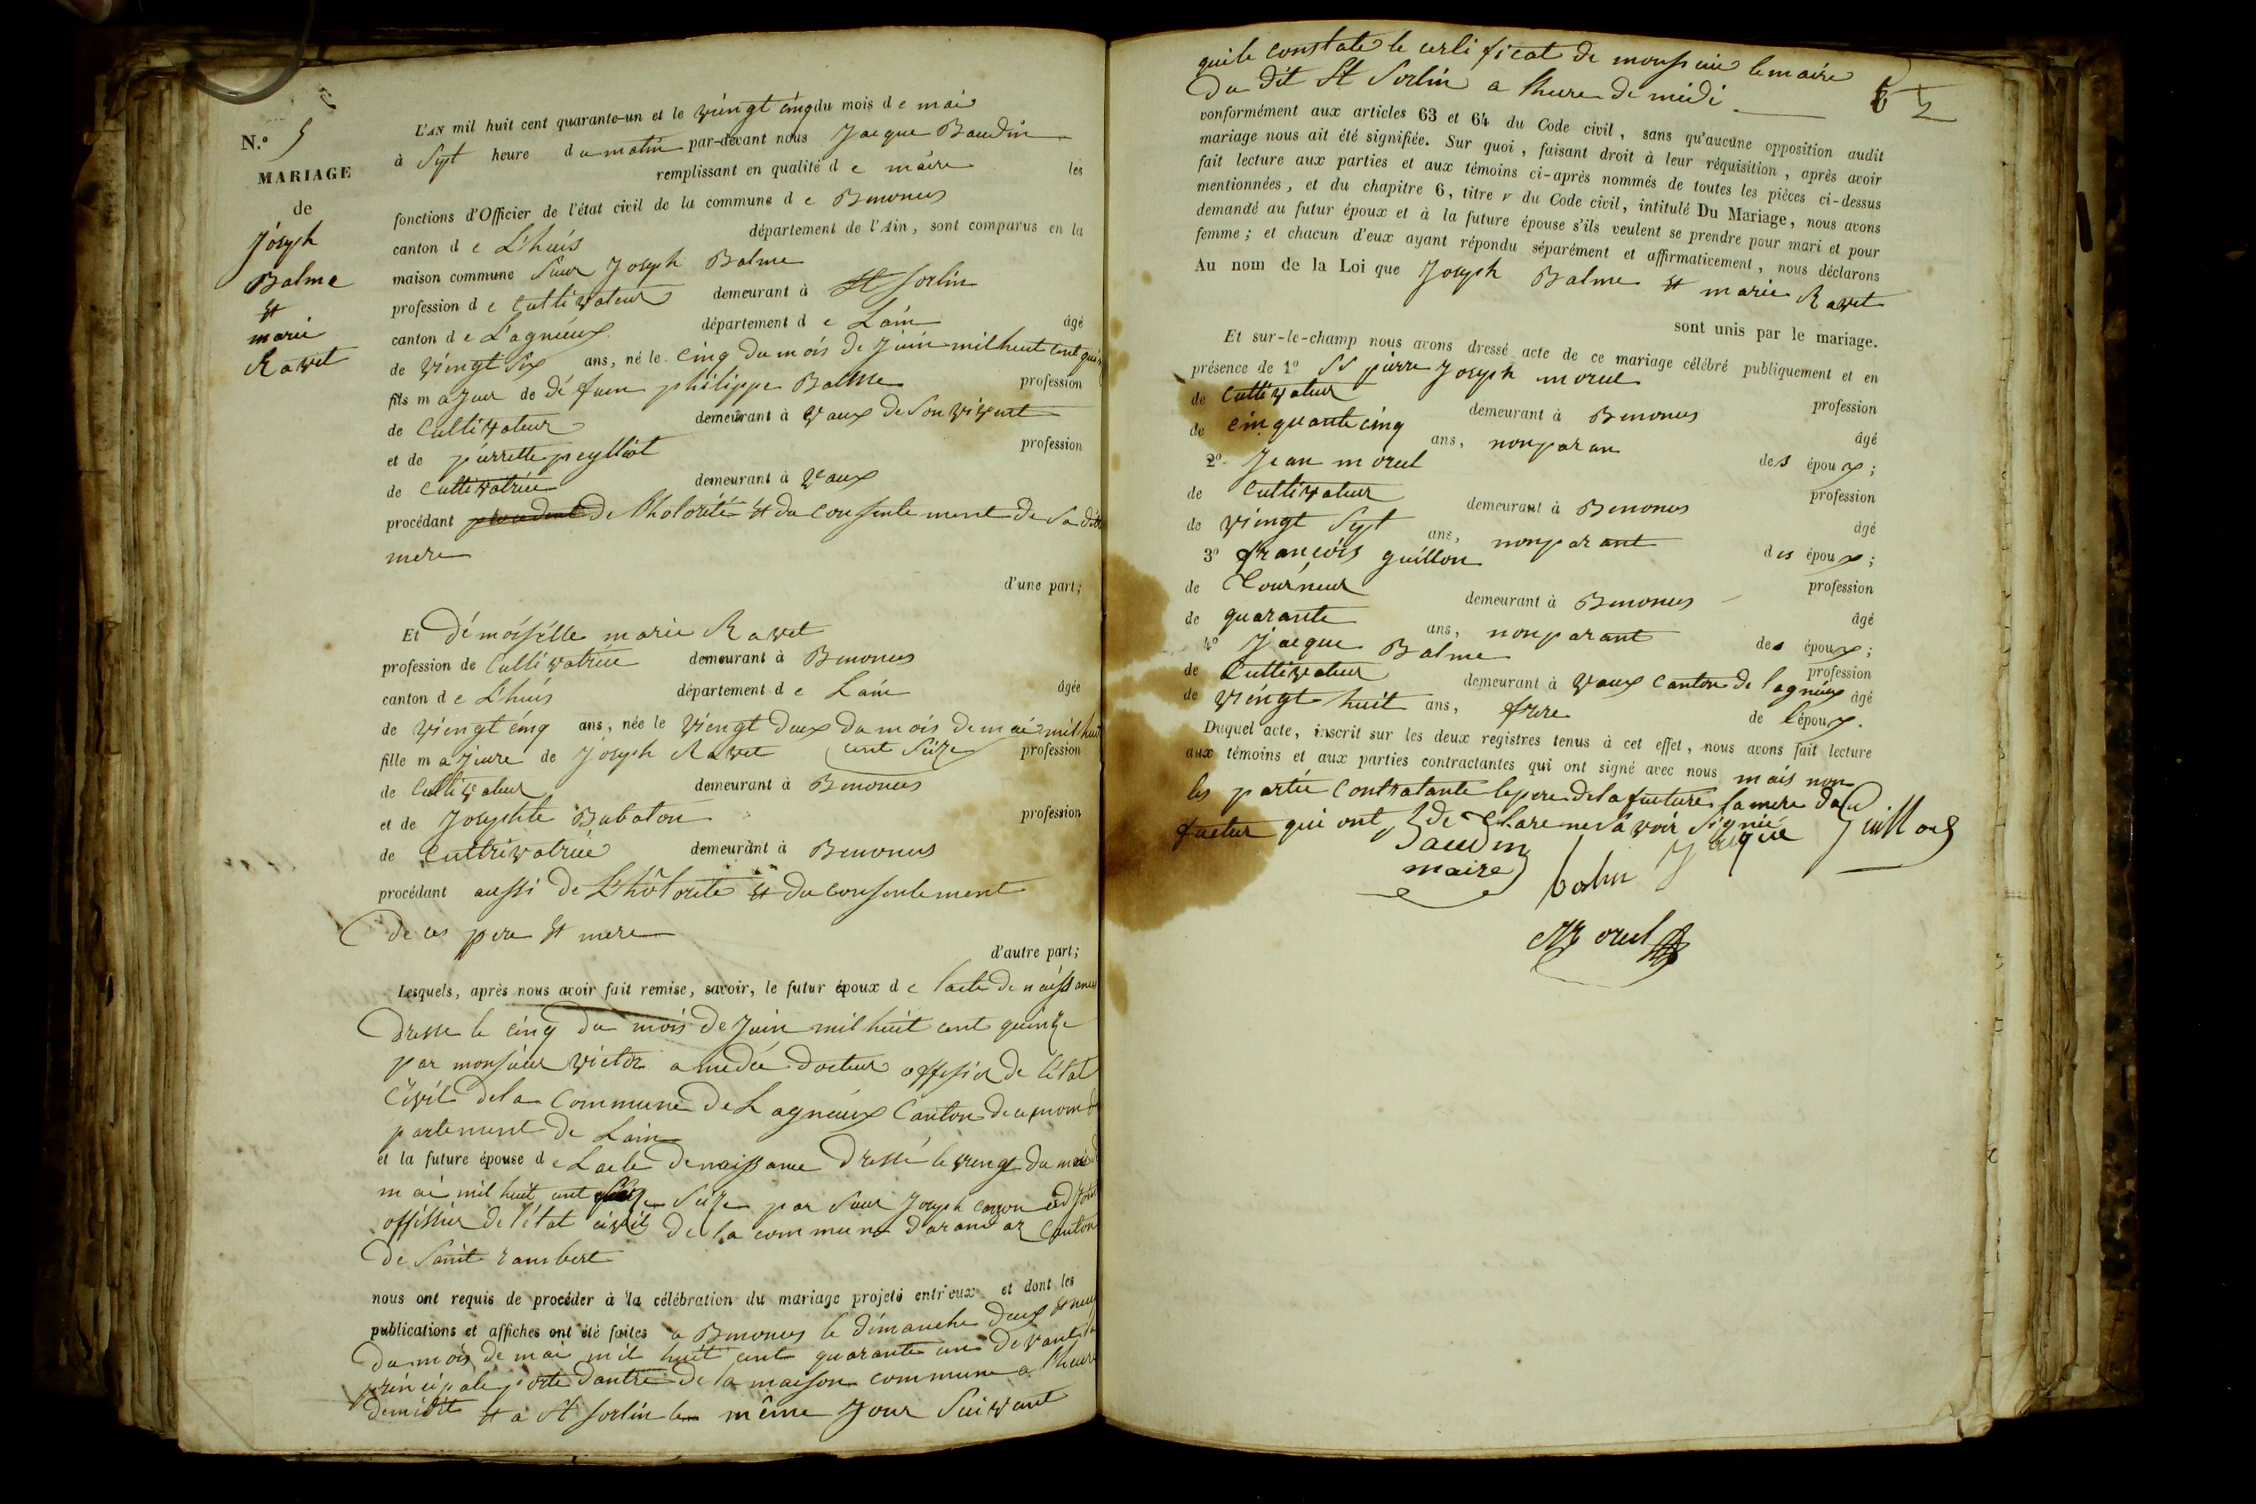 N.º 5
MARIAGE
de
Joseph
Balme
et
marie
Ravet
L'AN mil huit cent quarante-un et le vingt cinq du mois de mai
à Sept heure du matin par-devant nous Jacque Baudin
remplissant en qualité de maire les
fonctions d'Officier de l'état civil de la commune de Benonces
canton de L'huis département de l'Ain, sont comparus en la
maison commune Sieur Joseph Balme
profession de Cultivateur demeurant à St Sorlin
canton de Lagnieux département de Lain âgé
de vingt Six ans, né le cinq du mois de Juin mil huit cent
fils majeur de défun philippe Balme profession
de Cultivateur demeurant à Vaux de Son vivent
et de pierrette profession
de Cultivatrice demeurant à Vaux
procédant de Lhotorité et du consentement de Sa dite
mere
d'une part;
Et démoiselle marie Ravet
profession de Cultivatrice demeurant à Benonces
canton de L'huis département de Lain âgée
de vingt cinq ans, née le vingt deux du mois de mai mil hui
cent Seize
fille majeure de Joseph Ravet profession
de Cultivateur demeurant à Benonces
et de Josephte Babaton profession
de Cultrivatrice demeurant à Benonces
procédant aussi de L'hôtorité et du consentement
de ces pere et mere
d'autre part;
Lesquels, après nous avoir fait remise, savoir, le futur époux de lacte de naissance
Dresse le cinq du mois de Juin mil huit cent quinze
par monsieur victor amedée docteur offisier de l'état
Civil de la Commune de Lagnieux Canton de ce nom dé
partement de Lain
et la future épouse de Lacte de naissance Dressé le vingt du mois d
mai mil huit cent Seize par Sieur Joseph adjoint
offissier de l'état civil de la commune d'arandas Canton
de Saint rambert
nous ont requis de procéder à la célébration du mariage projeté entr'eux et dont les
publications et affiches ont été faites a Benonces le dimanche deux et neuf
du mois de mai mil huit cent quarante un devant la
principale porte dantré de la maison commune a l'heure
de midit et a St Sorlin le même Jour Suivant
quile constate le certificat de monsieur lemaire
Du dit St Sorlin a lheure de midi
conformément aux articles 63 et 64 du Code civil, sans qu'aucune opposition audit
mariage nous ait été signifiée. Sur quoi, faisant droit à leur réquisition, après avoir
fait lecture aux parties et aux témoins ci-après nommés de toutes les pièces ci-dessus
mentionnées, et du chapitre 6, titre V du Code civil, intitulé Du Mariage, nous avons
demandé au futur époux et à la future épouse s'ils veulent se prendre pour mari et pour
femme; et chacun d'eux ayant répondu séparément et affirmativement, nous déclarons
Au nom de la Loi que Joseph Balme et marie Ravet
sont unis par le mariage.
Et sur-le-champ nous avons dressé acte de ce mariage célébré publiquement et en
présence de 1º SS pierre Joseph morel profession
de Cultivateur demeurant à Benonces âgé
de cinquante cinq ans, nonparan des époux;
2º Jean morel profession
de Cultivateur demeurant à Benonces âgé
de vingt Sept ans, nonparant des époux;
3º françois guillon profession
de Tourneur demeurant à Benonces âgé
de quarante ans, nonparant des époux;
4º Jacque Balme profession
de Cultivateur demeurant à Vaux canton de lagnieux âgé
de vingt huit ans, frere de Lépoux.
Duquel acte, inscrit sur les deux registres tenus à cet effet, nous avons fait lecture
aux témoins et aux parties contractantes qui ont signé avec nous mais non
les partie contratante le pere de la future la mere du
futur qui ont de Clare ne Savoir Signié
Baudin
maire
Jacque
Guillon
Morel